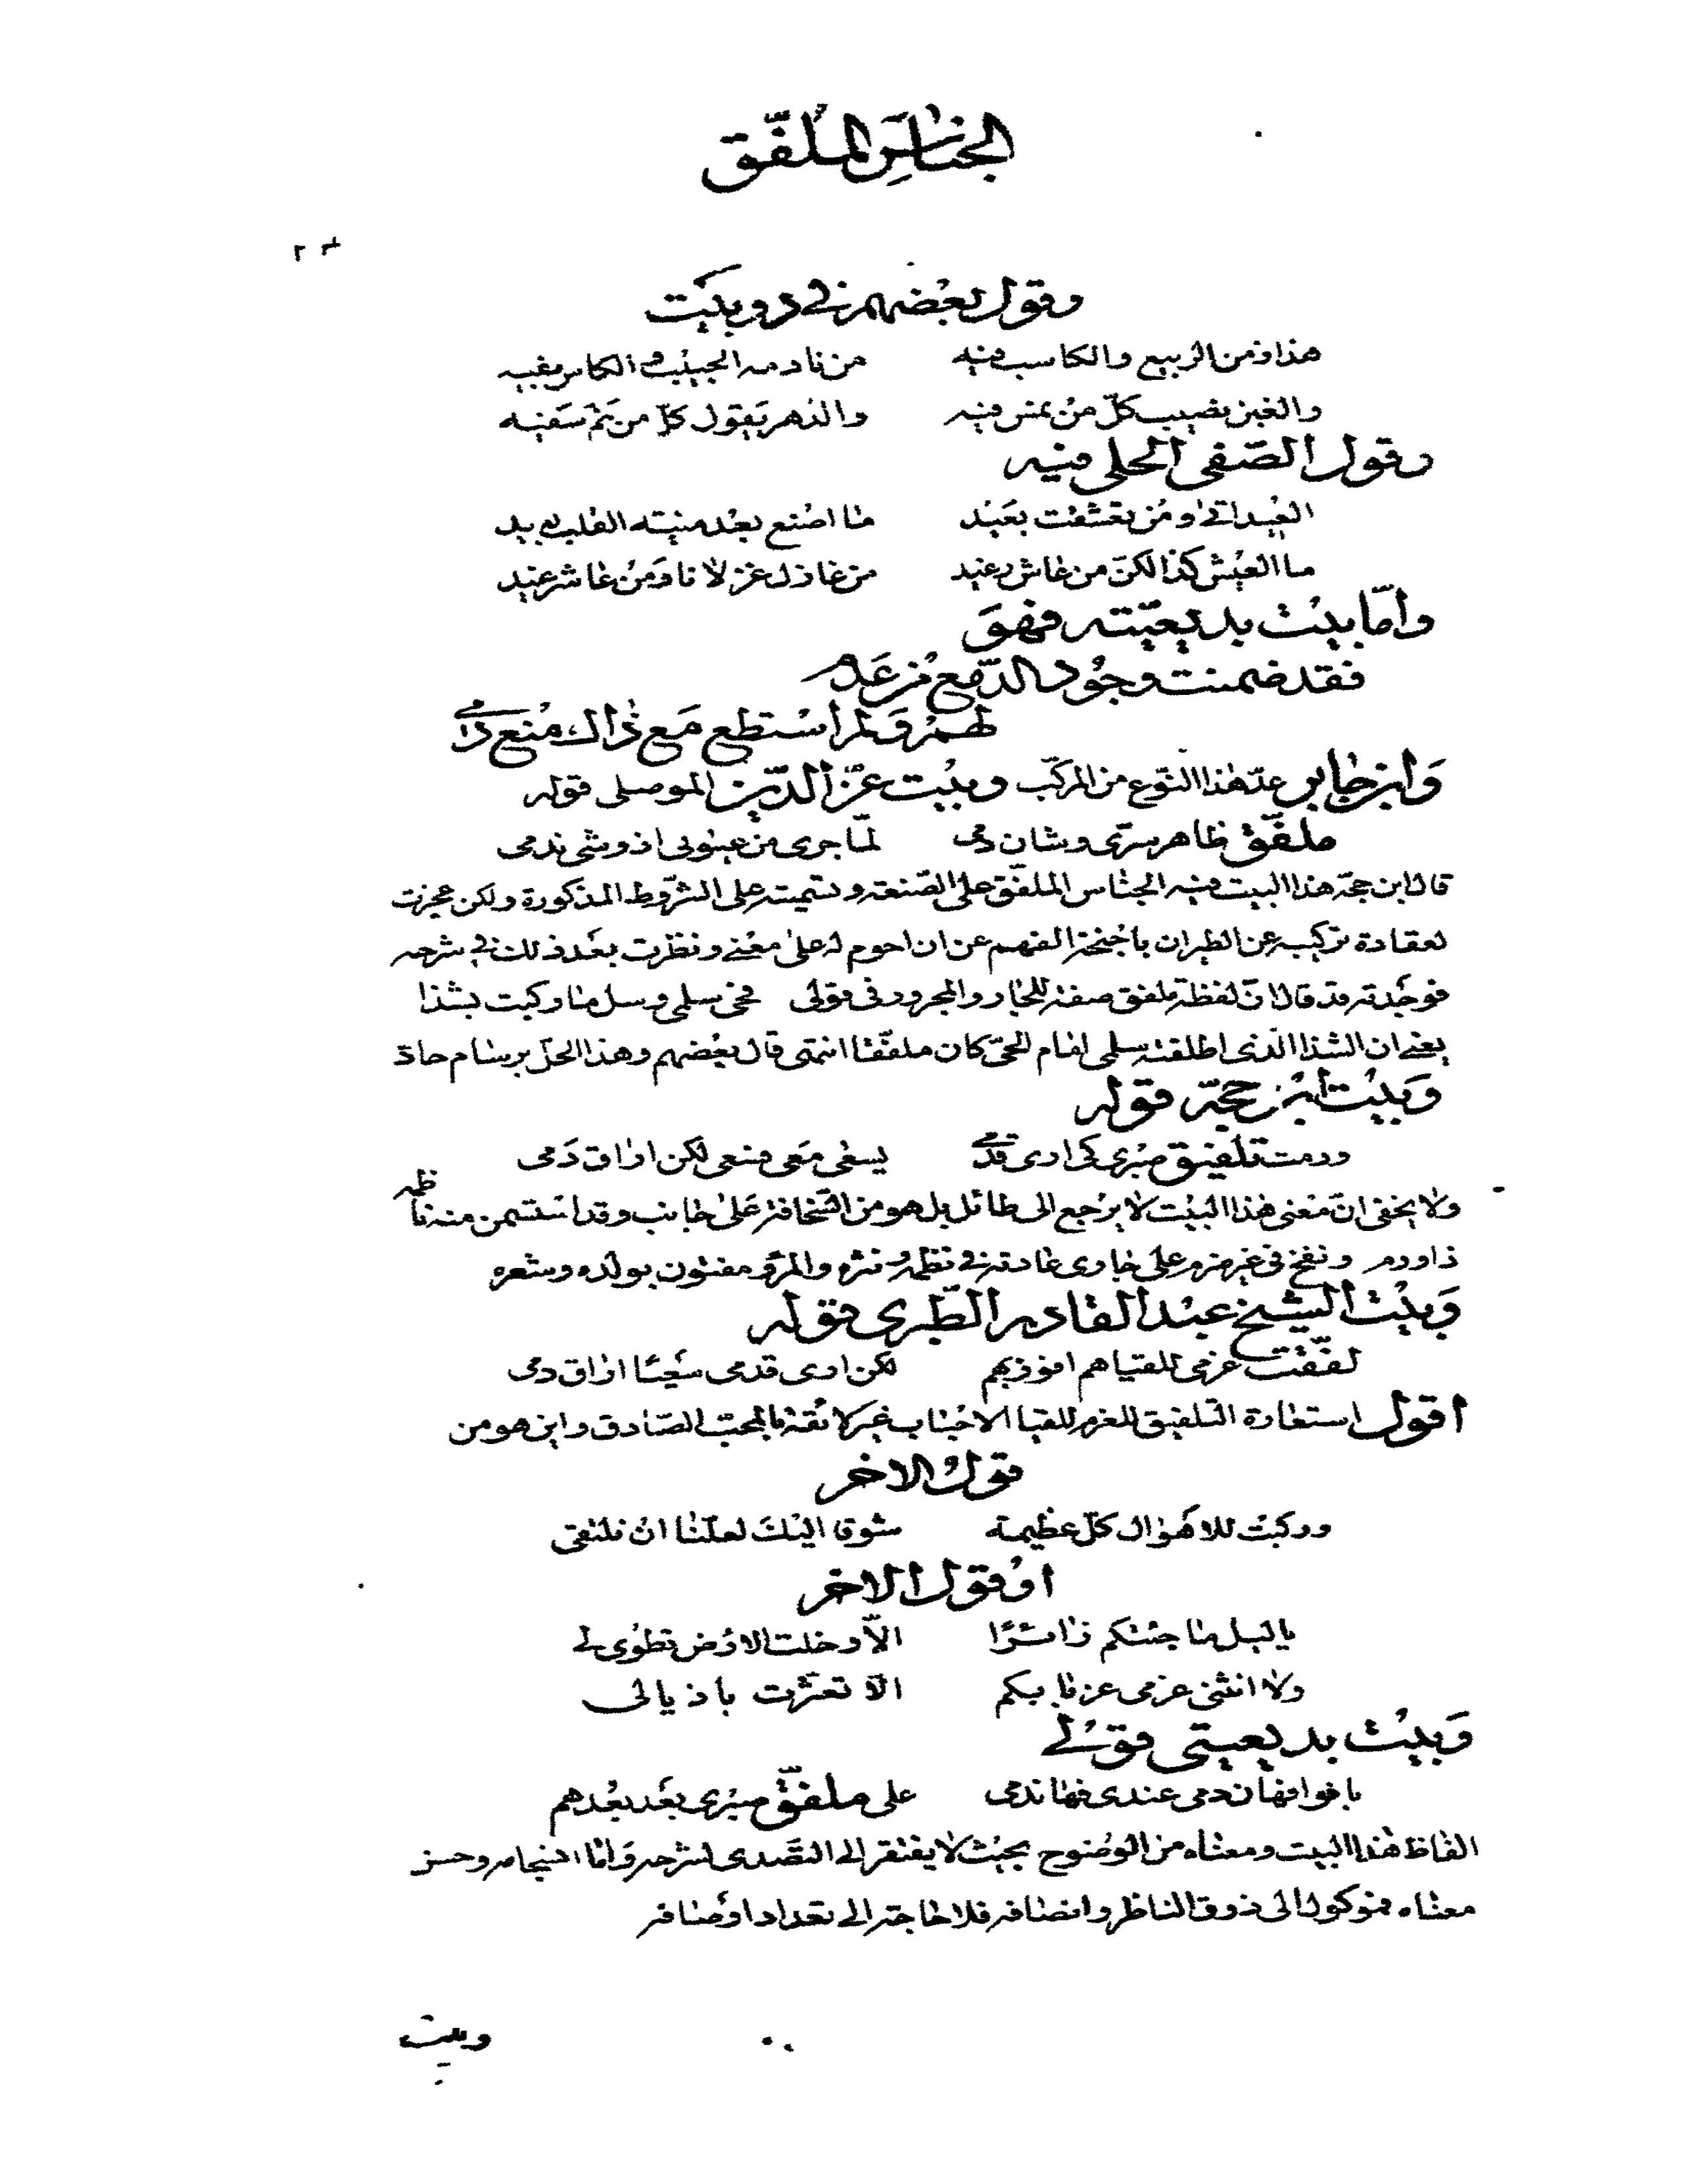 الجناس الملفّق
وقول بعضهم في دوبيت
هذا زمن الربيع والكاسب فيه من نادمه الحبيب والكاس بفيه
والغبن يصيب كلّ من فيه والدهر يقول كلّ من تم سفيه
وقول الصّفي الحلي فيه
العيد اتى ومن تعشقت بعيد ما اصنع بعد منية القلب بعيد
ما العيش كذا لكنّ من عاش رغيد من غازل غزلانا ومن عاشر غيد
وأمّا بيت بديعيّته فهو
فقد ضمنت وجود الدّمع من عدم
لهم ولم أستطع مع ذاك منع دمي
وابن جابر عدّ هذا النّوع من المركّب وبيت عزّ الدّين الموصلي قوله
ملفّق ظاهر سرّي وشان دمي لمّا جرى من عيوني اذ وشى ندمي
قال ابن حجّة هذا البيت فيه الجناس الملفّق على الصّنعة وتسميته على الشّروط المذكورة ولكن عجزت
لعقادة تركيبه عن الطيران باجنحة الفهم عن ان احوم له على معنى ونظرت بعد ذلك في شرحه
فوجدته قد قال انّ لفظة ملفق صفة للجار والمجرور في قولي فحي سلمى وسل ما ركبت بشذا
يعني ان الشذا الذي اطلقته سلمى امام الحيّ كان ملفّقا انتهى قال بعضهم وهذا الحلّ برسام حادّ
وبيت ابن حجّة قوله
ورمت تلفيق صبري كي ارى قدمي يسعى معي فسعى لكن اراق دمي
ولا يخفى انّ معنى هذا البيت لا يرجع الى طائل بل هو من السّخافة على جانب وقد استسمن منه ناظمه
ذا ورم ونفخ في غير ضرم على جاري عادته في نظمه ونثره والمرؤ مفتون بولده وشعره
وبيت الشّيخ عبد القادر الطّبري قوله
لفّقت عزمي للقياهم افوز بهم لكن ارى قدمي سعيًا اراق دمي
اقول استعارة التلفيق للعزم للقيا الاحباب غير لائقة بالمحبّ الصّادق واين هو من
قول الاخر
وركبت للاهوال كلّ عظيمة شوقا اليك لعلّنا ان نلتقي
او قول الاخر
يا ليل ما جئتكم زائرًا الّا وخلت الارض تطوى لي
ولا انثنى عزمي عن بابكم الّا تعثّرت باذيالي
وبيت بديعيتي قولي
بانوا فهان دمي عندي فها ندمي على ملفّق صبري بعد بعدهم
الفاظ هذا البيت ومعناه من الوضوح بحيث لا يفتقر الى التصدي لشرحه وامّا انسجامه وحسن
معناه فموكول الى ذوق الناظر وانصافه فلا حاجة الى تعداد اوصافه
وبيت